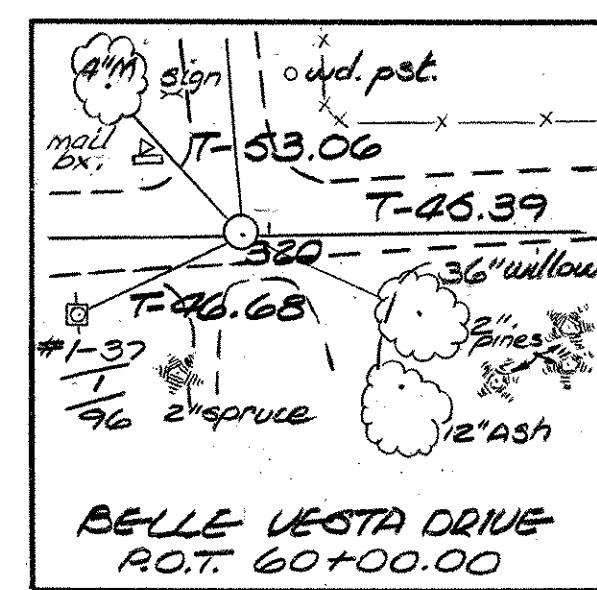 4"M
sign
wd. pst.
mail
bx.
T-53.06
T-46.39
320
36" willow
T-46.68
2"
pines
#1-37
1
96
2" spruce
12" Ash
BELLE VESTA DRIVE
P.O.T. 60+00.00